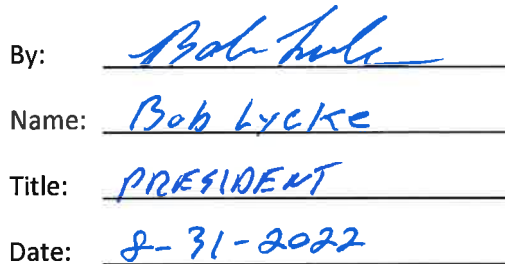 By: Bob Lycke
Name: Bob Lycke
Title: PRESIDENT
Date: 8-31-2022